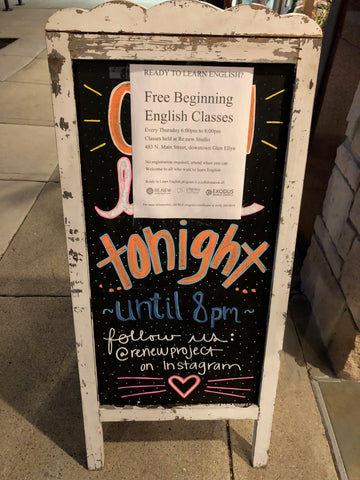 READY TO LEARN ENGLISH?
Free Beginning
English Classes
Every Thursday 6:00pm to 8:00pm
Classes held at Re:new Studio
483 N. Main Street, downtown Glen Ellyn
No registration required, attend when you can
Welcome to all who want to learn English
Ready to Learn English program is a collaboration of:
RE:NEW
EXODUS
tonight
~until 8pm~
follow us:
@renewproject
on Instagram